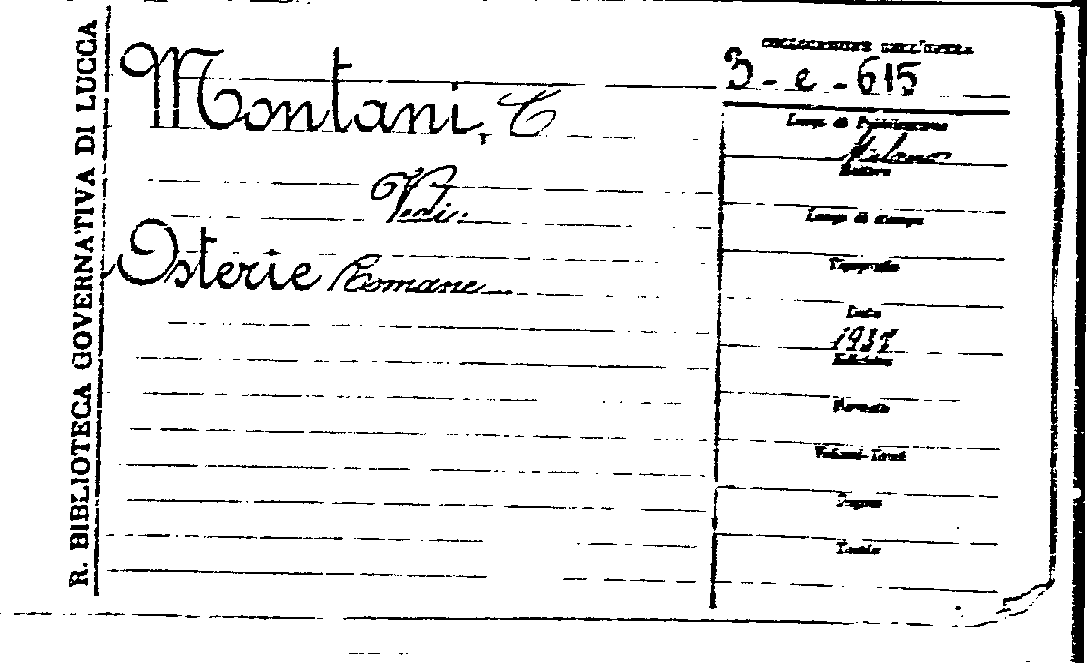 R. BIBLIOTECA GOVERNATIVA DI LUCCA
Montani, C
Vedi
Osterie Romane
COLLOCAZIONE DELL'OPERA
3 - e - 615
Luogo di Pubblicazione
Milano
Editore
Luogo di stampa
Tipografia
Data
Edizione
Formato
Volumi-Tomi
Pagine
Tavole